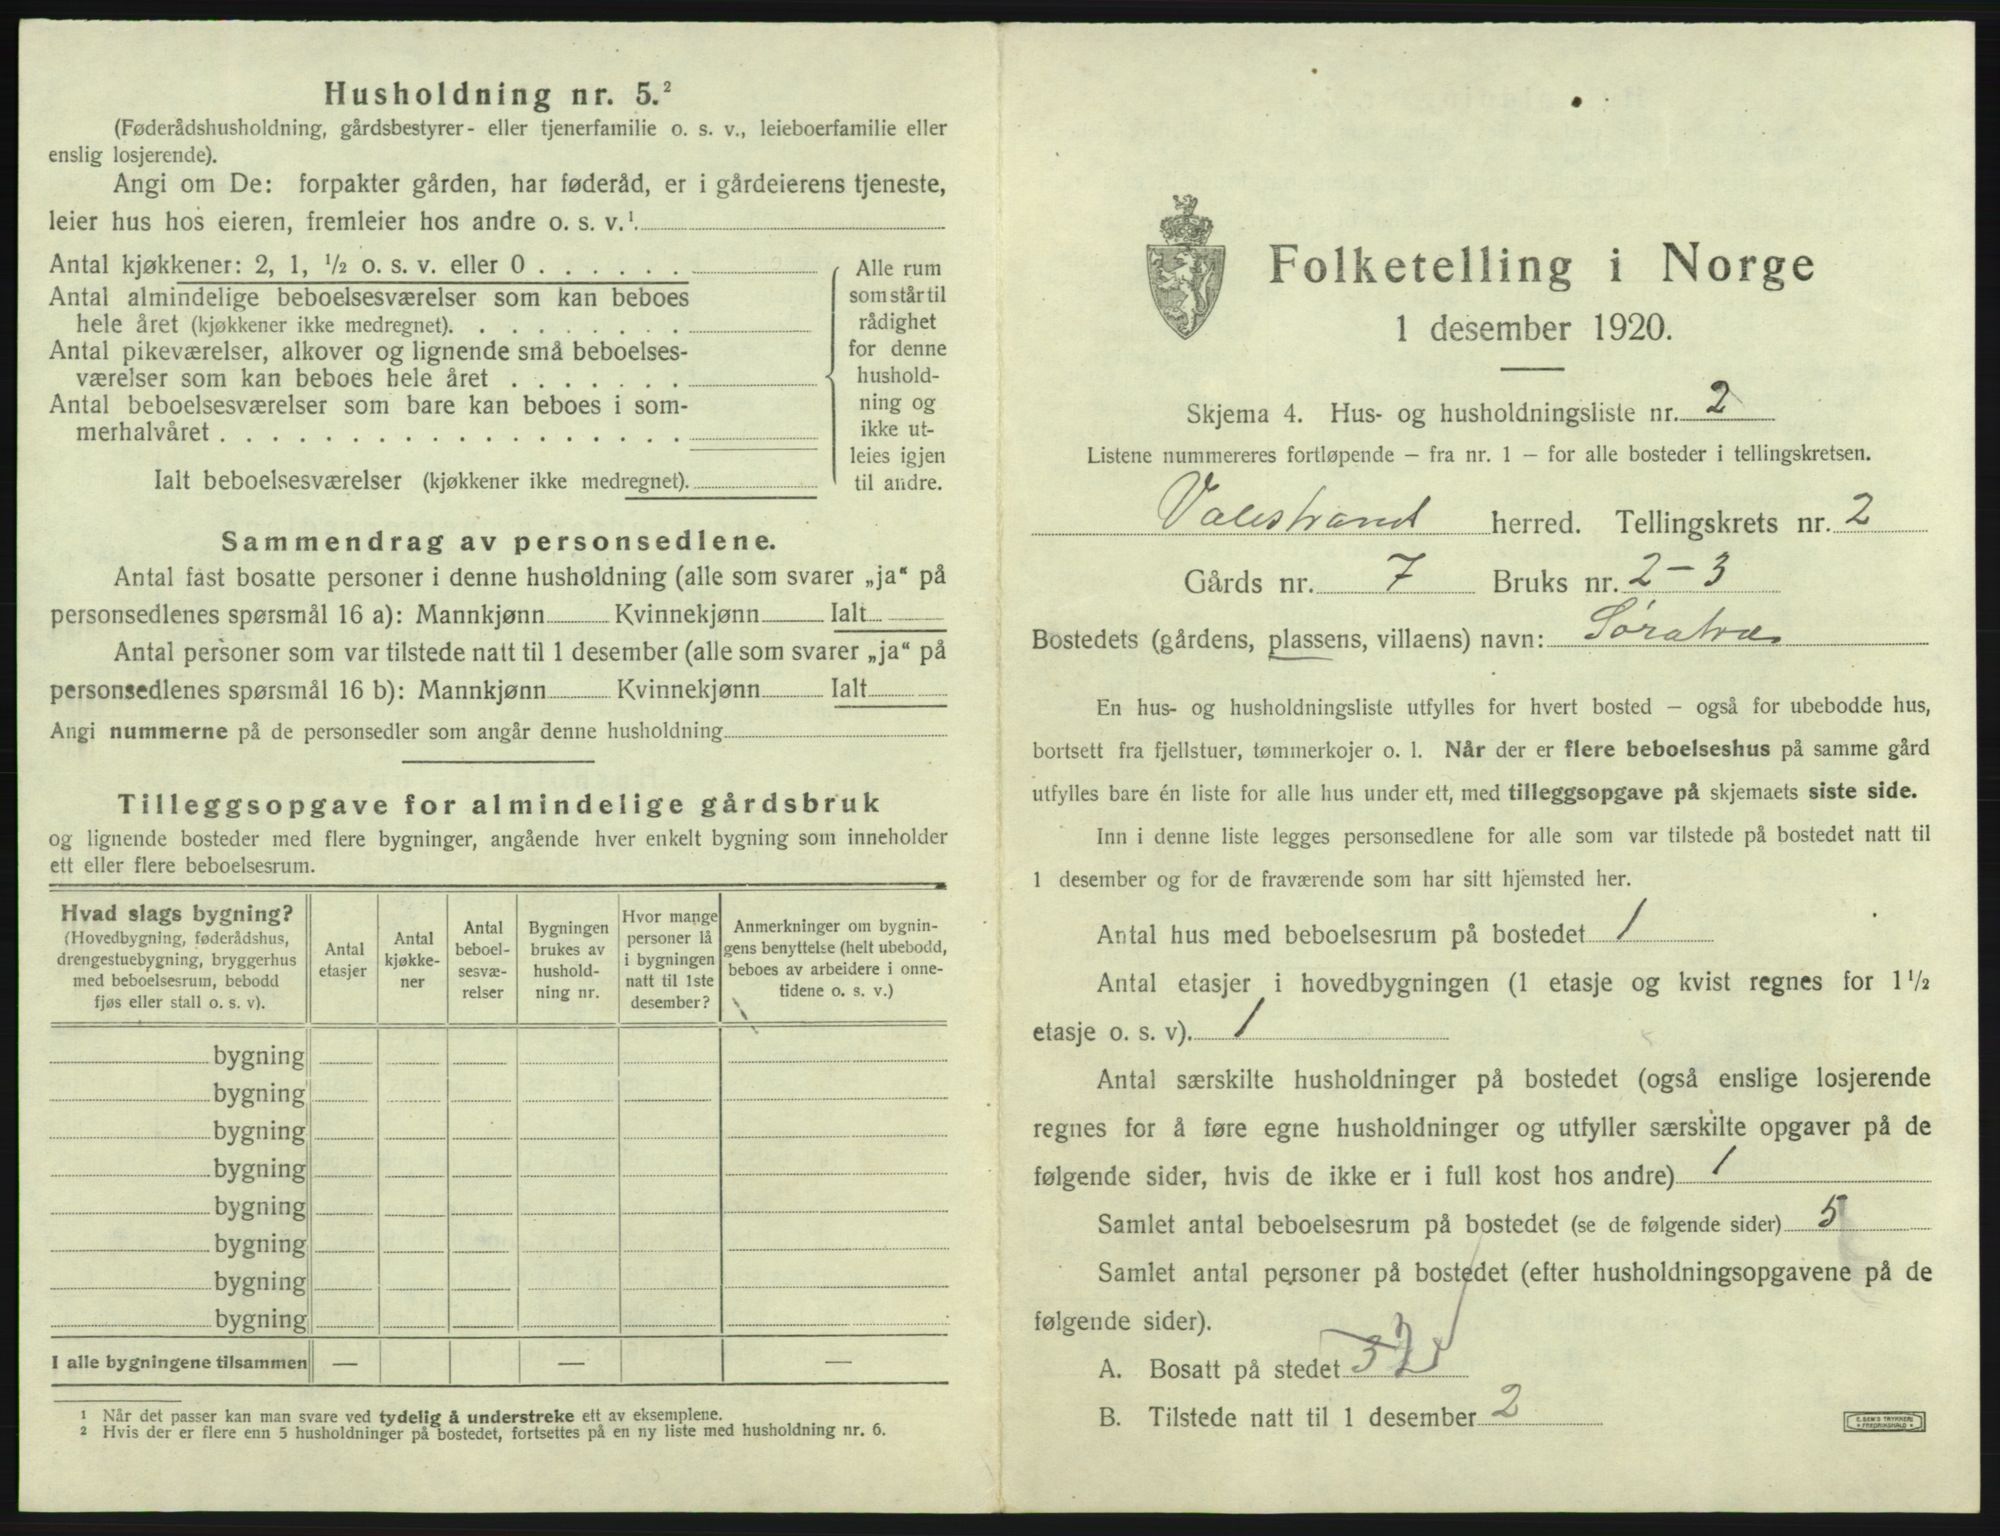 Husholdning nr. 5.²
(Føderådshusholdning, gårdsbestyrer- eller tjenerfamilie o. s. v., leieboerfamilie eller
enslig losjerende).
Angi om De: forpakter gården, har føderåd, er i gårdeierens tjeneste,
leier hus hos eieren, fremleier hos andre o. s. v.¹
Antal kjøkkener: 2, 1, ½ o. s. v. eller 0 . . . . . .
Antal almindelige beboelsesværelser som kan beboes
hele året (kjøkkener ikke medregnet). . . . . . . . .
Antal pikeværelser, alkover og lignende små beboelses-
værelser som kan beboes hele året . . . . . . .
Antal beboelsesværelser som bare kan beboes i som-
merhalvåret . . . . . . . . . . . . . . . . . .
Ialt beboelsesværelser (kjøkkener ikke medregnet).
Alle rum
som står til
rådighet
for denne
hushold-
ning og
ikke ut-
leies igjen
til andre.
Sammendrag av personsedlene.
Antal fast bosatte personer i denne husholdning (alle som svarer „ja“ på
personsedlenes spørsmål 16 a): Mannkjønn Kvinnekjønn Ialt
Antal personer som var tilstede natt til 1 desember (alle som svarer „ja“ på
personsedlenes spørsmål 16 b): Mannkjønn Kvinnekjønn Ialt
Angi nummerne på de personsedler som angår denne husholdning
Tilleggsopgave for almindelige gårdsbruk
og lignende bosteder med flere bygninger, angående hver enkelt bygning som inneholder
ett eller flere beboelsesrum.
Hvad slags bygning?
(Hovedbygning, føderådshus,
drengestuebygning, bryggerhus
med beboelsesrum, bebodd
fjøs eller stall o. s. v).
Antal
etasjer
Antal
kjøkke-
ner
Antal
beboel-
sesvæ-
relser
Bygningen
brukes av
hushold-
ning nr.
Hvor mange
personer lå
i bygningen
natt til 1ste
desember?
Anmerkninger om bygnin-
gens benyttelse (helt ubebodd,
beboes av arbeidere i onne-
tidene o. s. v.)
bygning
bygning
bygning
bygning
bygning
bygning
bygning
bygning
I alle bygningene tilsammen — — —
¹ Når det passer kan man svare ved tydelig å understreke ett av eksemplene.
² Hvis der er flere enn 5 husholdninger på bostedet, fortsettes på en ny liste med husholdning nr. 6.
Folketelling i Norge
1 desember 1920.
Skjema 4. Hus- og husholdningsliste nr. 2
Listene nummereres fortløpende – fra nr. 1 – for alle bosteder i tellingskretsen.
Valestrand herred. Tellingskrets nr. 2
Gårds nr. 7 Bruks nr. 2-3
Bostedets (gårdens, plassens, villaens) navn:
En hus- og husholdningsliste utfylles for hvert bosted – også for ubebodde hus,
bortsett fra fjellstuer, tømmerkojer o. l. Når der er flere beboelseshus på samme gård
utfylles bare én liste for alle hus under ett, med tilleggsopgave på skjemaets siste side.
Inn i denne liste legges personsedlene for alle som var tilstede på bostedet natt til
1 desember og for de fraværende som har sitt hjemsted her.
Antal hus med beboelsesrum på bostedet 1
Antal etasjer i hovedbygningen (1 etasje og kvist regnes for 1½
etasje o. s. v). 1
Antal særskilte husholdninger på bostedet (også enslige losjerende
regnes for å føre egne husholdninger og utfyller særskilte opgaver på de
følgende sider, hvis de ikke er i full kost hos andre) 1
Samlet antal beboelsesrum på bostedet (se de følgende sider) 5
Samlet antal personer på bostedet (efter husholdningsopgavene på de
følgende sider).
A. Bosatt på stedet
B. Tilstede natt til 1 desember 2